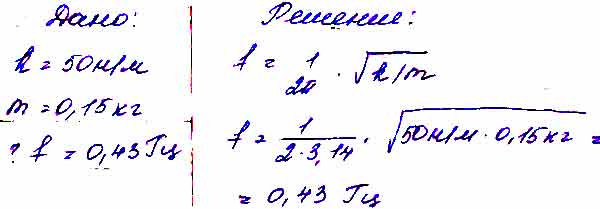 Дано:
k = 50н/м
m = 0,15кг
? f = 0,43 Гц
Решение:
f = 1/2π · √k/m
f = 1/2·3,14 · √50н/м · 0,15кг =
= 0,43 Гц